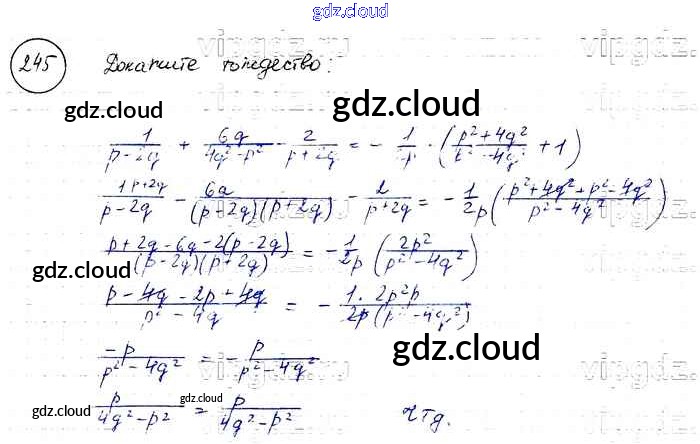 gdz.cloud
245 Докажите тождество:
gdz.cloud gdz.cloud
1/(p-2q) + 6q/(4q²-p²) - 2/(p+2q) = - 1/2p · (p²+4q²/p²-4q² + 1)
1 p+2q/(p-2q) - 6q/((p-2q)(p+2q)) - 2/(p+2q) = - 1/2p (p²+4q²+p²-4q²/p²-4q²)
p+2q-6q-2(p-2q)/((p-2q)(p+2q)) = - 1/2p (2p²/p²-4q²)
gdz.cloud
p-4q-2p+4q/p²-4q = - 1·2p²p/2p(p²-4q²)
-p/p²-4q² = - p/p²-4q²
gdz.cloud
p/4q²-p² = p/4q²-p² чтд.
gdz.cloud gdz.cloud